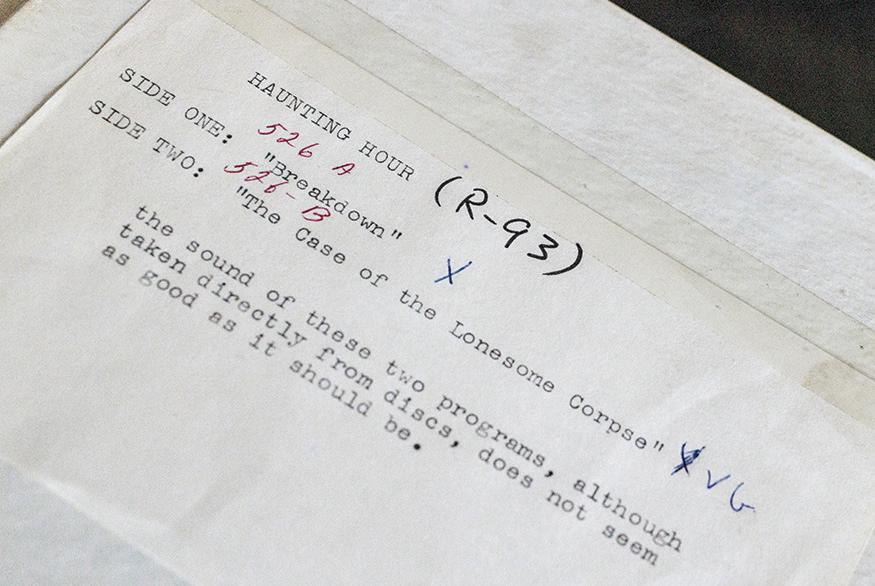 HAUNTING HOUR (R-93)
526 A
SIDE ONE: "Breakdown" X
526-B
SIDE TWO: "The Case of the Lonesome Corpse" X VG
the sound of these two programs, although
taken directly from discs, does not seem
as good as it should be.